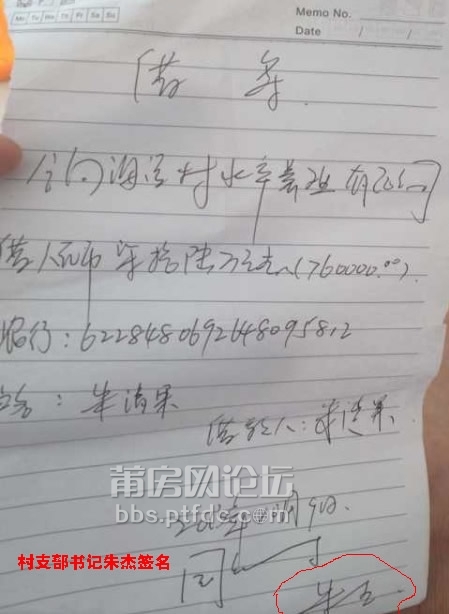 Memo No.
Mo Tu We Th Fr Sa Su
Date / /
借条
今向海滨村水产养殖有限公司
借人民币柒拾陆万元(760000.00).
银行:6228480692648095812
户名:朱清果
借款人:朱清果
莆房网论坛
bbs.ptfdc.com
月9日.
村支部书记朱杰签名
同
朱杰